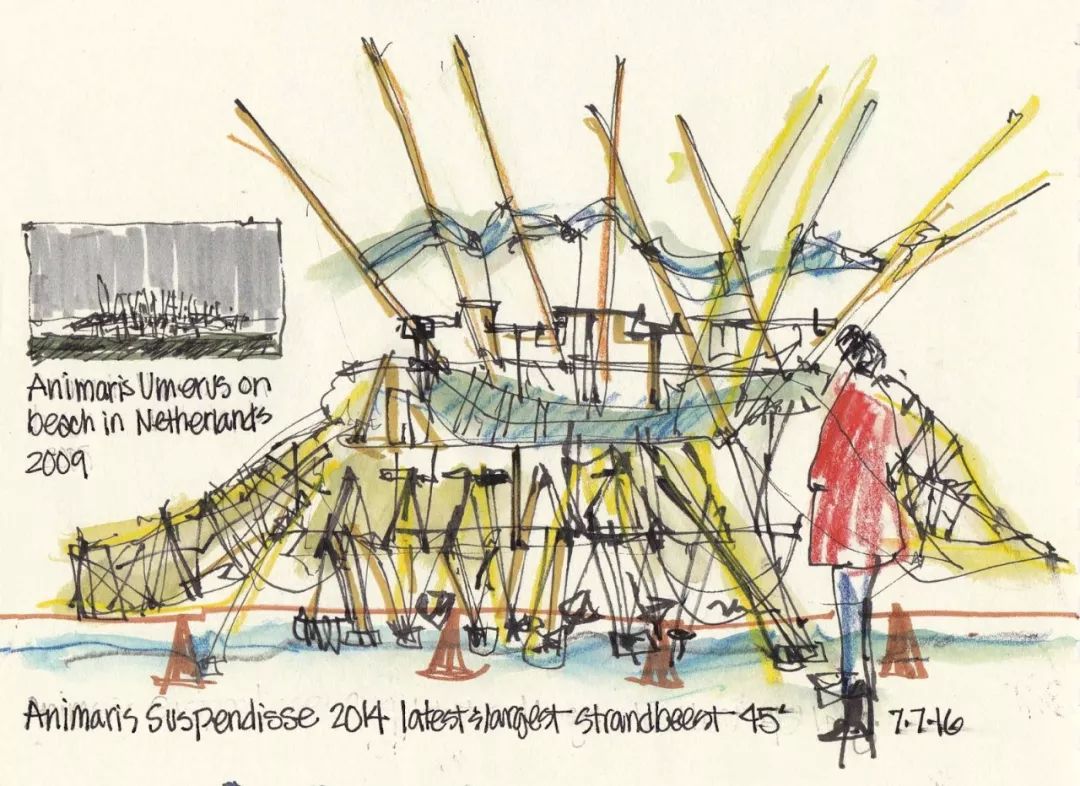 Animaris Umerus on
beach in Netherlands
2009
Animaris Suspendisse 2014 latest & largest strandbeest 45' 7.7.16